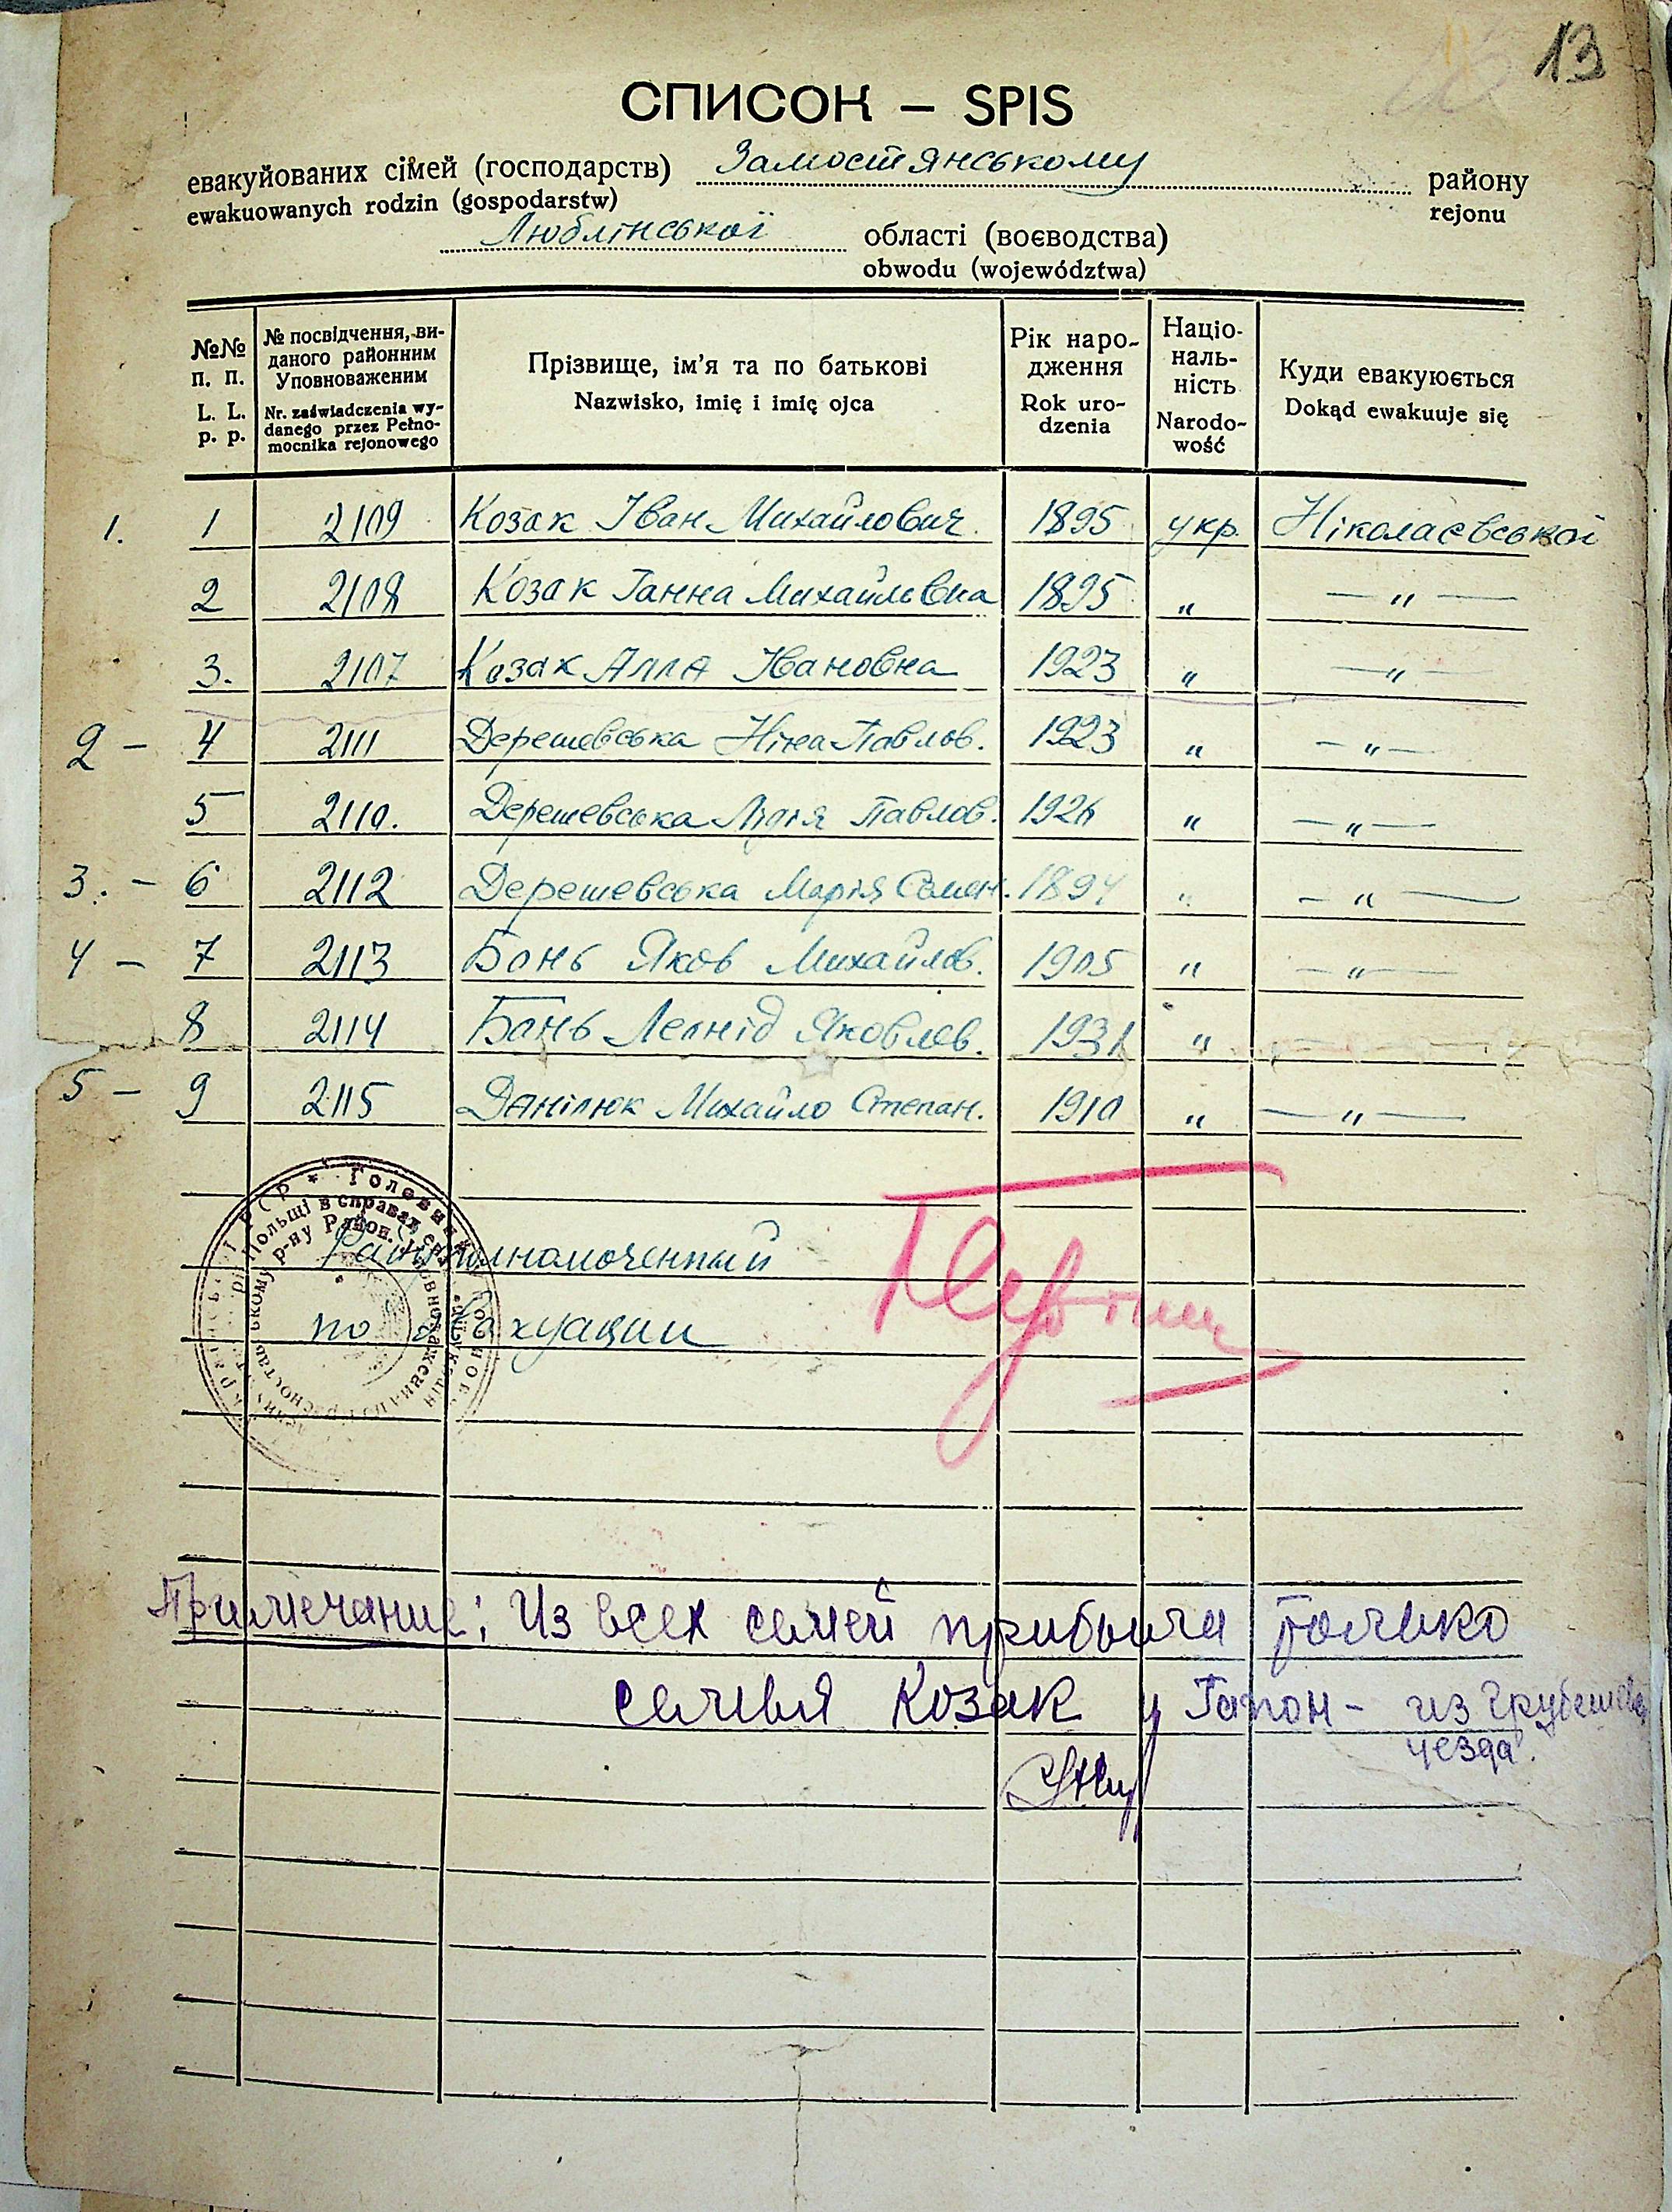 13
СПИСОК — SPIS
евакуйованих сімей (господарств) Замостянському району
ewakuowanych rodzin (gospodarstw) rejonu
Люблінської області (воєводства)
obwodu (województwa)
№№ п. п. L. L. p. p. № посвідчення, виданого районним Уповноваженим Nr. zaświadczenia wydanego przez Pełnomocnika rejonowego Прізвище, ім'я та по батькові Nazwisko, imię i imię ojca Рік народження Rok urodzenia Національність Narodowość Куди евакуюється Dokąd ewakuuje się
1. 1 2109 Козак Іван Михайлович 1895 укр. Ніколаєвської
2 2108 Козак Ганна Михайловна 1895 „ — „ —
3. 2107 Козак Алла Івановна 1923 „ — „ —
2 — 4 2111 Дерешевська Ніна Павлов. 1923 „ — „ —
5 2110. Дерешевська Лідія Павлов. 1926 „ — „ —
3. — 6 2112 Дерешевська Марія Семен. 1894 „ — „ —
4 — 7 2113 Бань Яков Михайлов. 1905 „ — „ —
8 2114 Бань Леонід Яковлев. 1931 „
5 — 9 2115 Данілюк Михайло Степан. 1910 „ — „ —
Головний
Польщі в справах
р-ну Район.
Райуполномоченный
по эвакуации
Примечание: Из всех семей прибыла только
семья Козак и Гапон — из Грубешев.
уезда.